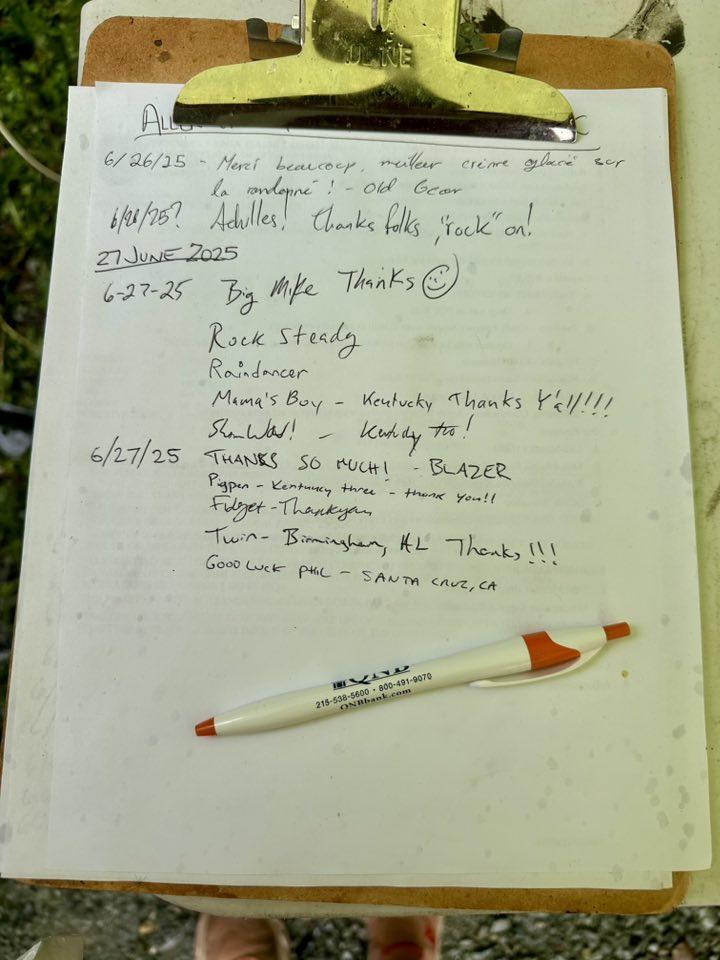 ULINE
6/26/25 - Merci beaucoup, meilleur crème glacé sur
la randonné! - Old Gear
6/26/25? Achilles! Thanks folks, "rock" on!
27 JUNE 2025
6-27-25 Big Mike Thanks
Rock Steady
Raindancer
Mama's Boy - Kentucky Thanks Y'all!!!
- Kentucky too!
6/27/25 THANKS SO MUCH! - BLAZER
Pigpen - Kentucky three - thank you!!
Fidget - Thankyou
Twin - Birmingham, AL Thanks!!!
GOOD LUCK PHIL - SANTA CRUZ, CA
QNB
215-538-5600 • 800-491-9070
QNBbank.com